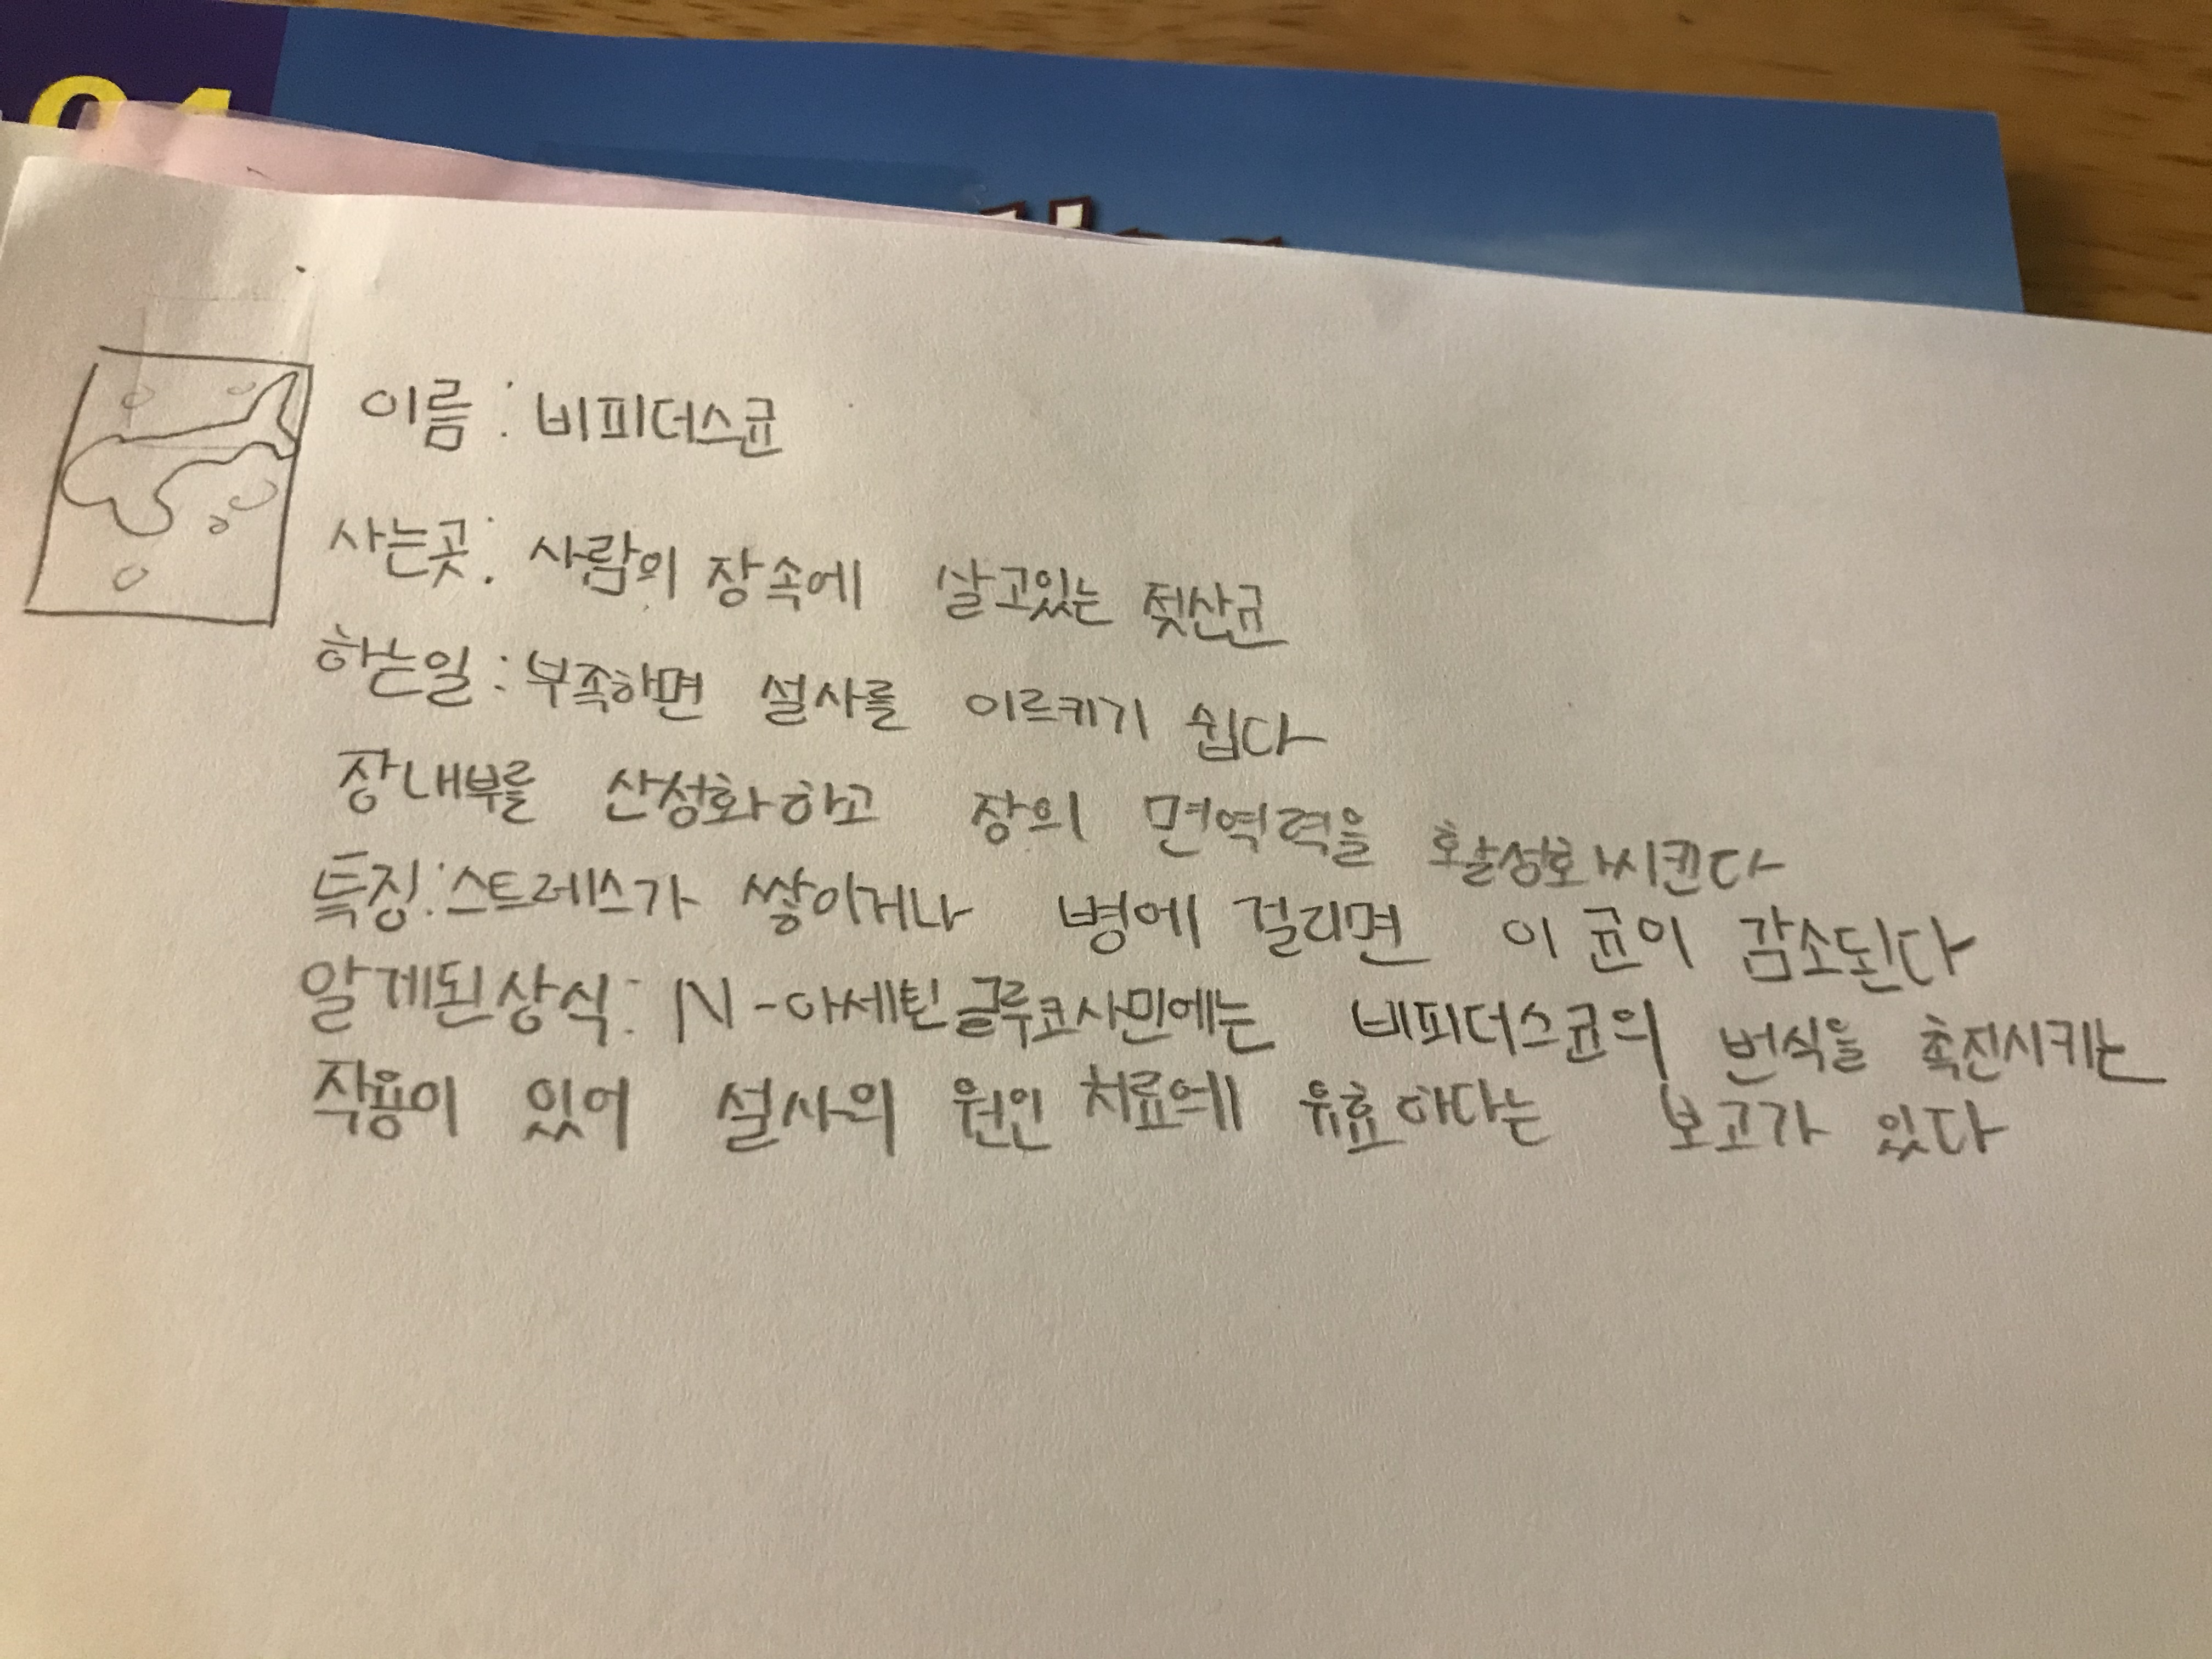 이름 : 비피더스균
사는곳 : 사람의 장속에 살고있는 젖산균
하는일 : 부족하면 설사를 이르키기 쉽다
장내부를 산성화하고 장의 면역력을 활성화시킨다
특징 : 스트레스가 쌓이거나 병에 걸리면 이 균이 감소된다
알게된상식 : N-아세틴글루코사민에는 비피더스균의 번식을 촉진시키는
작용이 있어 설사의 원인 치료에 유효하다는 보고가 있다